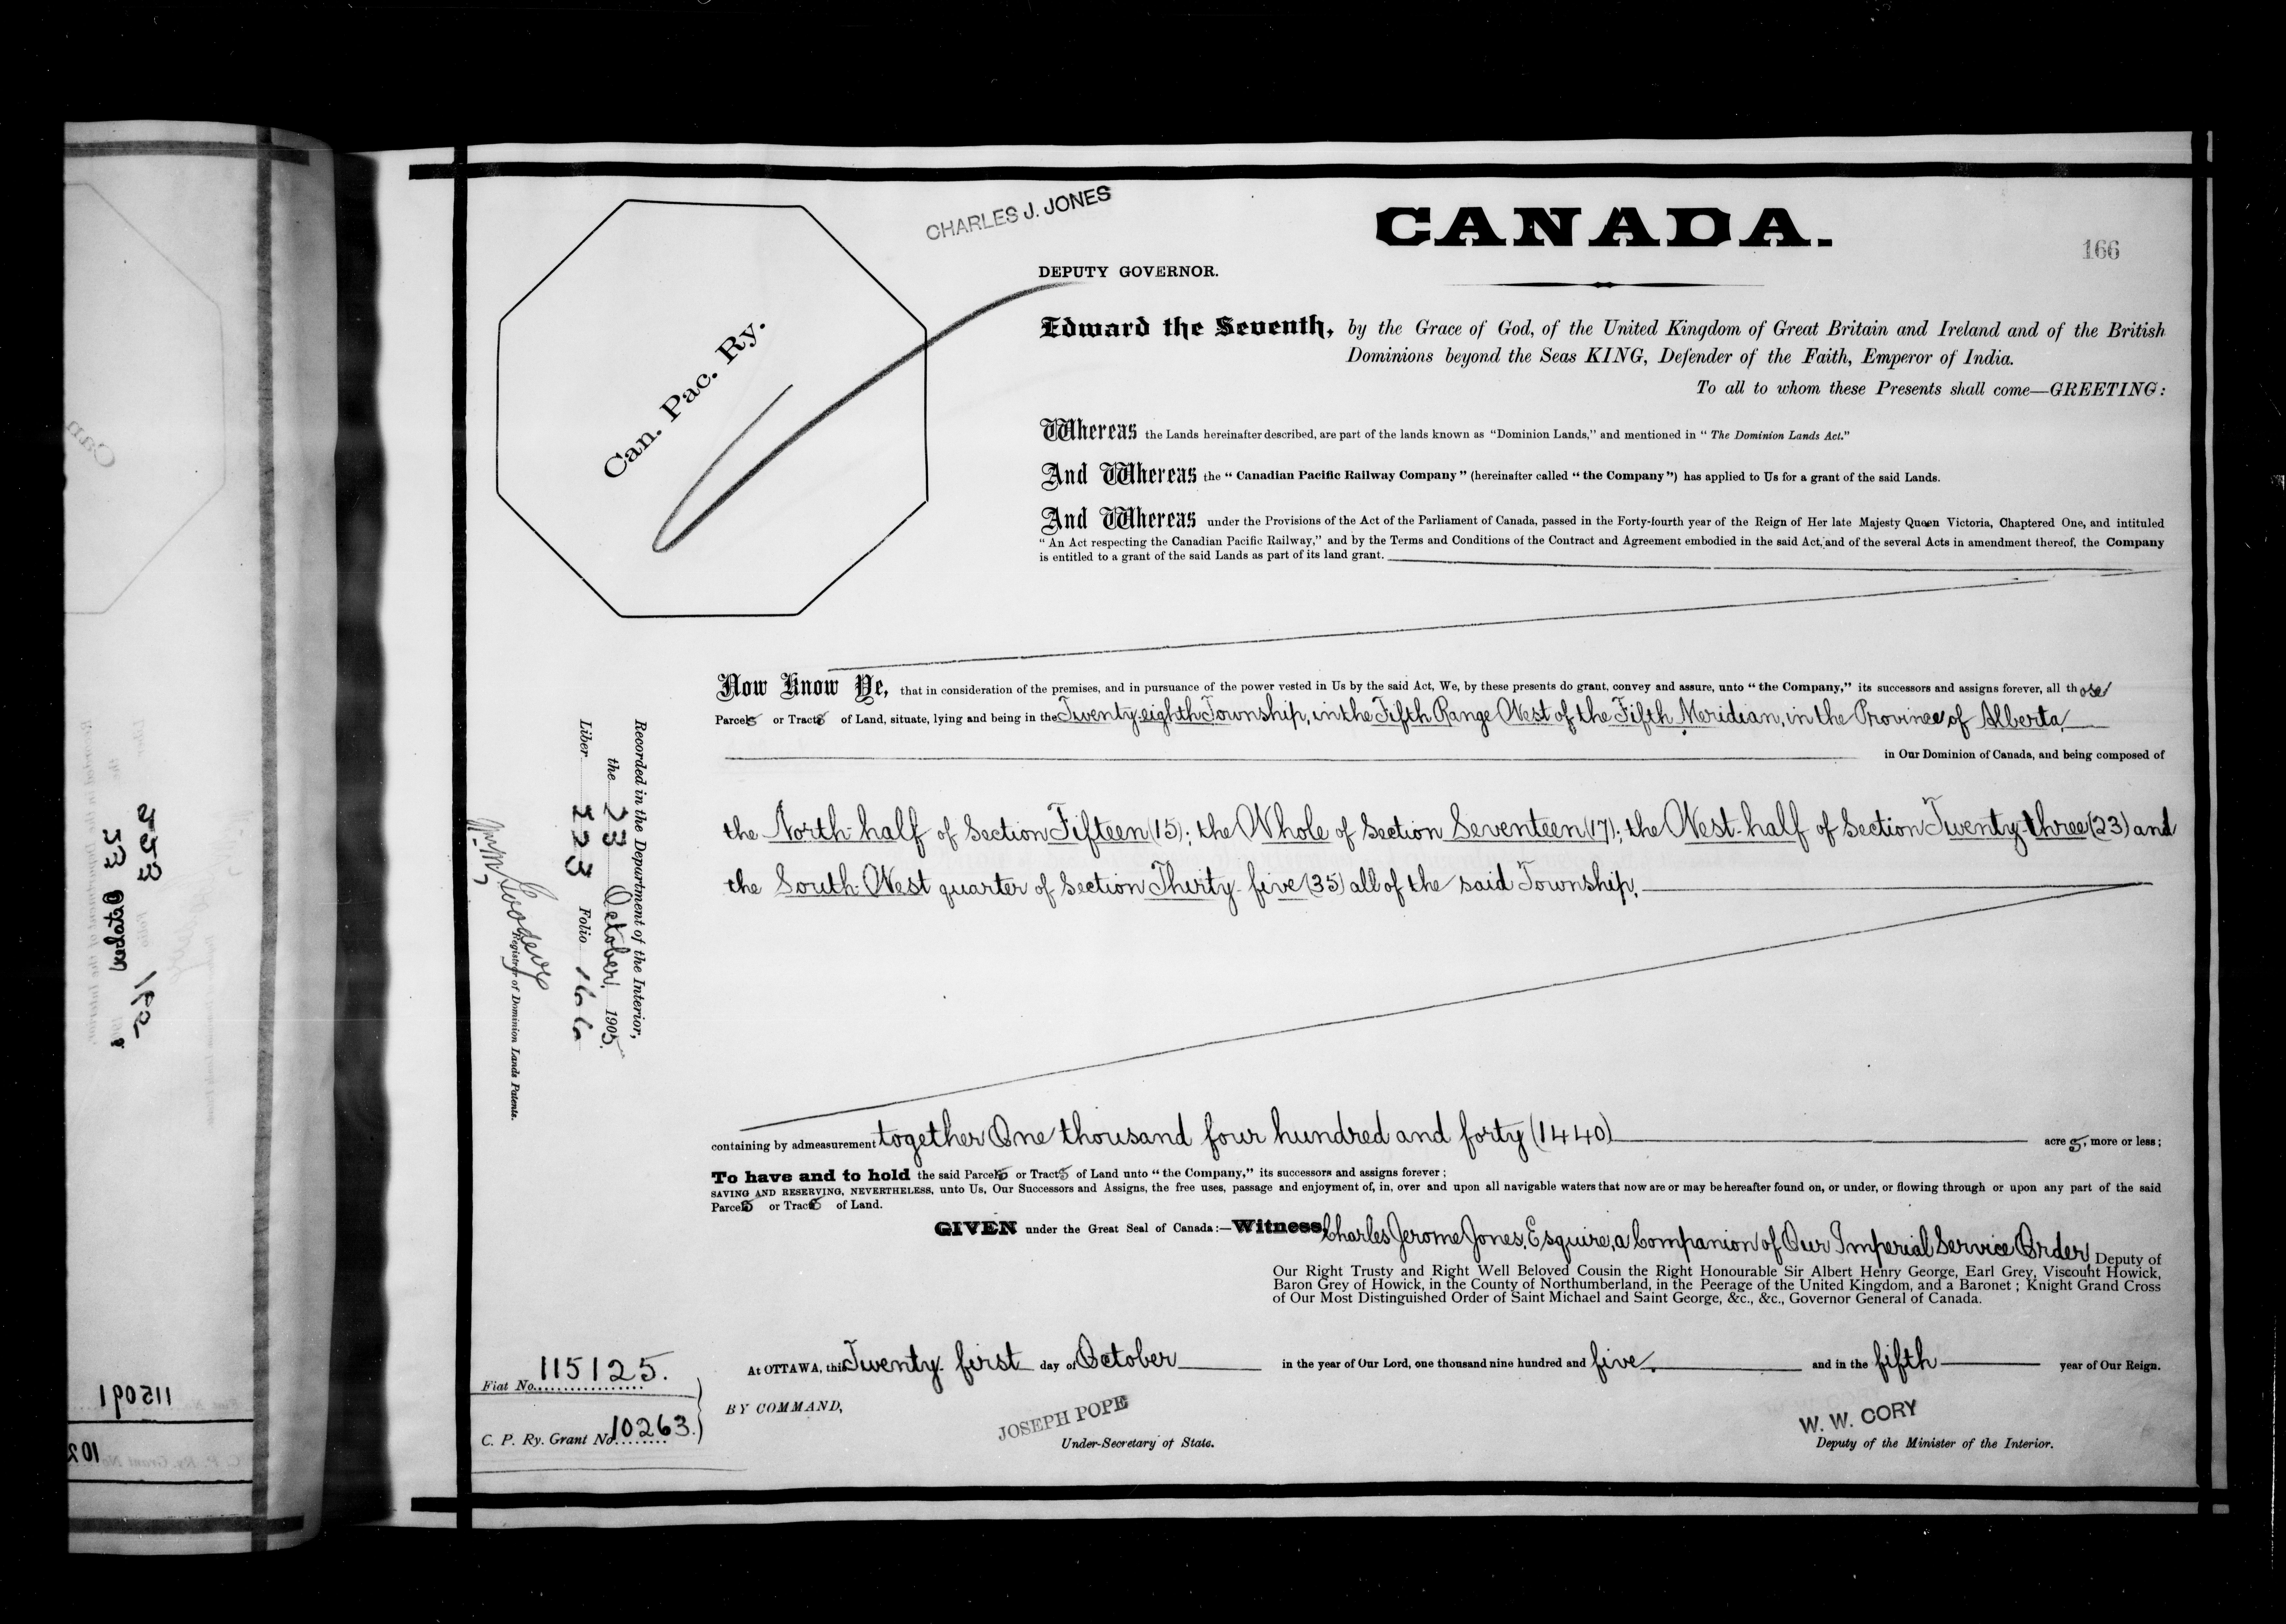 CHARLES J. JONES
CANADA.
166
DEPUTY GOVERNOR.
Can. Pac. Ry.
Edward the Seventh, by the Grace of God, of the United Kingdom of Great Britain and Ireland and of the British
Dominions beyond the Seas KING, Defender of the Faith, Emperor of India.
To all to whom these Presents shall come—GREETING:
Whereas the Lands hereinafter described, are part of the lands known as "Dominion Lands," and mentioned in "The Dominion Lands Act."
And Whereas the "Canadian Pacific Railway Company" (hereinafter called "the Company") has applied to Us for a grant of the said Lands.
And Whereas under the Provisions of the Act of the Parliament of Canada, passed in the Forty-fourth year of the Reign of Her late Majesty Queen Victoria, Chaptered One, and intituled
"An Act respecting the Canadian Pacific Railway," and by the Terms and Conditions of the Contract and Agreement embodied in the said Act, and of the several Acts in amendment thereof, the Company
is entitled to a grant of the said Lands as part of its land grant.
Now Know Ye, that in consideration of the premises, and in pursuance of the power vested in Us by the said Act, We, by these presents do grant, convey and assure, unto "the Company," its successors and assigns forever, all those
Parcels or Tracts of Land, situate, lying and being in the Twenty-eighth Township, in the Fifth Range West of the Fifth Meridian, in the Province of Alberta,
in Our Dominion of Canada, and being composed of
the North-half of Section Fifteen (15); the Whole of Section Seventeen (17); the West-half of Section Twenty-three (23) and
the South-West quarter of Section Thirty-five (35) all of the said Township.
containing by admeasurement together One thousand four hundred and forty (1440) acres, more or less;
To have and to hold the said Parcels or Tracts of Land unto "the Company," its successors and assigns forever;
SAVING AND RESERVING, NEVERTHELESS, unto Us, Our Successors and Assigns, the free uses, passage and enjoyment of, in, over and upon all navigable waters that now are or may be hereafter found on, or under, or flowing through or upon any part of the said
Parcels or Tracts of Land.
GIVEN under the Great Seal of Canada:—Witness, Charles Jerome Jones, Esquire, a Companion of Our Imperial Service Order, Deputy of
Our Right Trusty and Right Well Beloved Cousin the Right Honourable Sir Albert Henry George, Earl Grey, Viscount Howick,
Baron Grey of Howick, in the County of Northumberland, in the Peerage of the United Kingdom, and a Baronet; Knight Grand Cross
of Our Most Distinguished Order of Saint Michael and Saint George, &c., &c., Governor General of Canada.
At OTTAWA, this Twenty-first day of October in the year of Our Lord, one thousand nine hundred and five. and in the fifth year of Our Reign.
BY COMMAND,
JOSEPH POPE
Under-Secretary of State.
W. W. CORY
Deputy of the Minister of the Interior.
Recorded in the Department of the Interior,
the 23 October, 1905.
Liber 223 Folio 166
Registrar of Dominion Lands Patents.
Fiat No. 115125.
C. P. Ry. Grant No. 10263.
115091